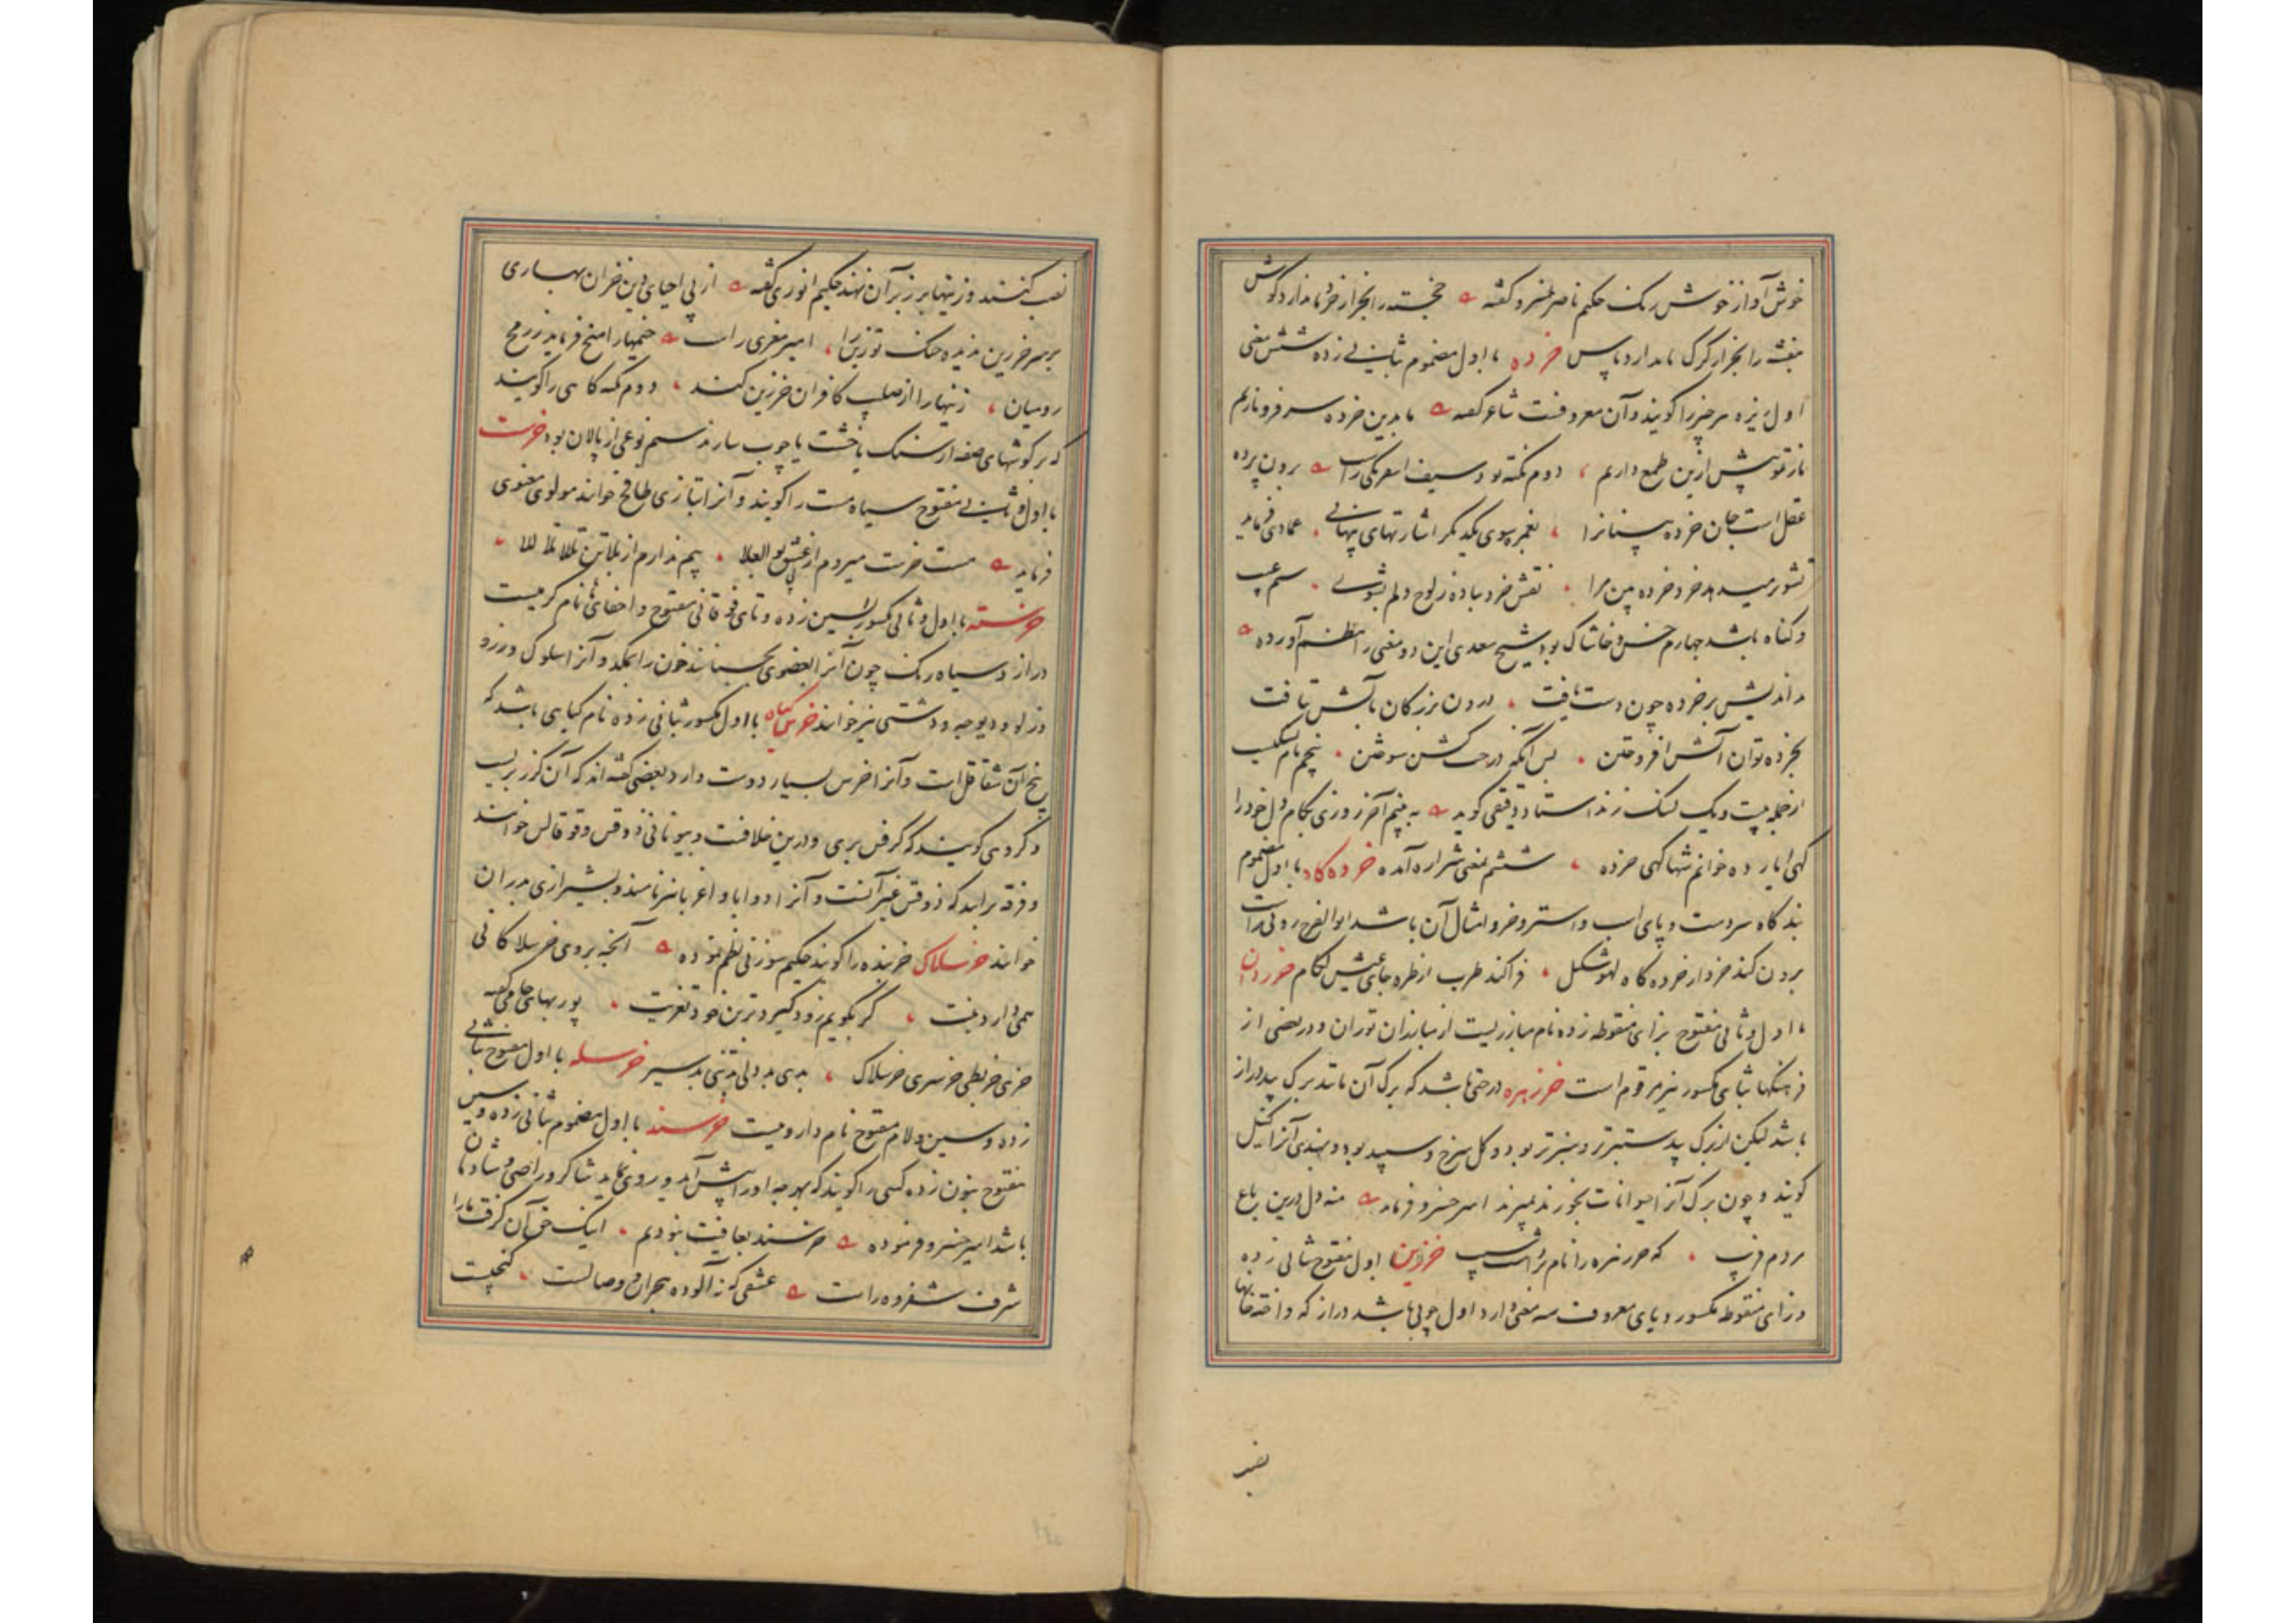 خوش آواز خوش رنگ حکیم ناصر خسرو گفته خجسته را بجز از خردما ندارد گوش
بنفشه را بجز از کرک ما ندارد پاس خرده با اول مضموم بثانی زده شش معنی
اول ریزه هر چیز را گویند و آن معروفست شاعر گفته ما بدین خرده سر فرو ناریم
از تو پیش ازین طمع داریم دوم نکته بود سیف اسفرنگی راست برون پرده
عقل است جان خرده بینانرا بغمزه سوی یکدیگر اشارتهای پنهانی عمادی فرماید
تشویر میدهد خرد خرده بین مرا نقش خرد بباده ز لوح دلم بشوی سیم عیب
و گناه باشد چهارم خس و خاشاک بود شیخ سعدی این دو معنی را نظم آورده
بداندیش بر خرده چون دست یافت درون بزرگان بآتش بتافت
بخرده توان آتش افروختن پس آنگه درخت کشن سوختن پنجم نام نسکیست
از جمله بیست و یک نسک زند استاد دقیقی گوید به بینم آخر روزی بکام دل خود را
گهی ایارده خوانم شها گهی خرده ششم بمعنی شراره آمده خرده کاه با اول مضموم
بندگاه سر دست و پای اسب و استر و خر و امثال آن باشد ابوالفرج رونی راست
برون کند خرد از خرده گاه لهو شکل فراکند طرب از طره جای عیش لگام خزروان
با اول و ثانی مفتوح بزای منقوطه زده نام مبارزیست از مبارزان توران و در بعضی از
فرهنگها بثانی مکسور نیز مرقوم است خرزهره درختی باشد که برگ آن مانند برگ بید دراز
باشد لیکن از برگ بید ستبرتر و سبزتر بود و گل سرخ و سپید بود و بهندی آنرا کنیل
گویند و چون برگ آنرا حیوانات بخورند بمیرند امیر خسرو فرماید منه دل درین باغ
مردم فریب که خرزهره را نام خرزین اول مفتوح بثانی زده
و زای منقوطه مکسور و یای معروف سه معنی دارد اول چوبی باشد دراز که در خانها
نصب
نصب کنند و زینها بر زبر آن نهند حکیم انوری گفته از پی احیای دین خزان بهاری
بر سر خرزین ندیده خنک تو زین را امیر معزی راست خیمها را میخ فرماید ز رمح
رومیان زینها را از صلیب کافران خرزین کند دوم تکه گاهی را گویند
که بر گوشهای صفه از سنگ یا خشت یا چوب سازند سیم نوعی از پالان بود خرست
با اول و ثانی مفتوح سیاه مست را گویند و آنرا بتازی طافح خوانند مولوی معنوی
فرماید مست خرست میروم از عشق بو العلا بیم ندارم از بلا تن تللا تلا للا
خرسته با اول و ثانی مکسور بسین زده و تای فوقانی مفتوح و اخفای ها نام کرمیست
دراز و سیاه رنگ چون آنرا بعضوی بچسبانند خون را بمکد و آنرا سلوک و زرو
و زلو و دیوچه و دشتی نیز خوانند خرس گیاه با اول مکسور بثانی زده نام گیاهی باشد که
بیخ آن شقاقل است و آنرا خرس بسیار دوست دارد بعضی گفته اند که آن گزر بریست
و گروهی گویند که کرفس بری و درین خلافست و بیونانی ذوقس و قوقالس خوانند
و فرقه برآنند که ذوقس غیر آنست و آنرا دوایا و اغریا نیز نامند و بشیرازی بدران
خوانند خرسلاک خربنده را گویند حکیم سوزنی نظم نموده آنچه بر وی خرسلاکانی
همی دارد بنیت گر بگویم زود گیرد ترین خود تعزیت پور بهای جامی گفته
خری خربطی خرسری خرسلاک بدی بددلی بدتنی بدسیر خرسله با اول مفتوح بثانی
زده و سین و لام مفتوح نام داروییست خرسند با اول مضموم بثانی زده و سین
مفتوح بنون زده کسی را گویند که بهر چه او را پیش آید و روی نماید شاکر و راضی و شادمان
باشد امیر خسرو فرموده خرسند بعافیت نبودم اینک حق آن گرفت ما را
شرف شفروه راست عشقی که نه آلوده هجران و وصالست گنجیست